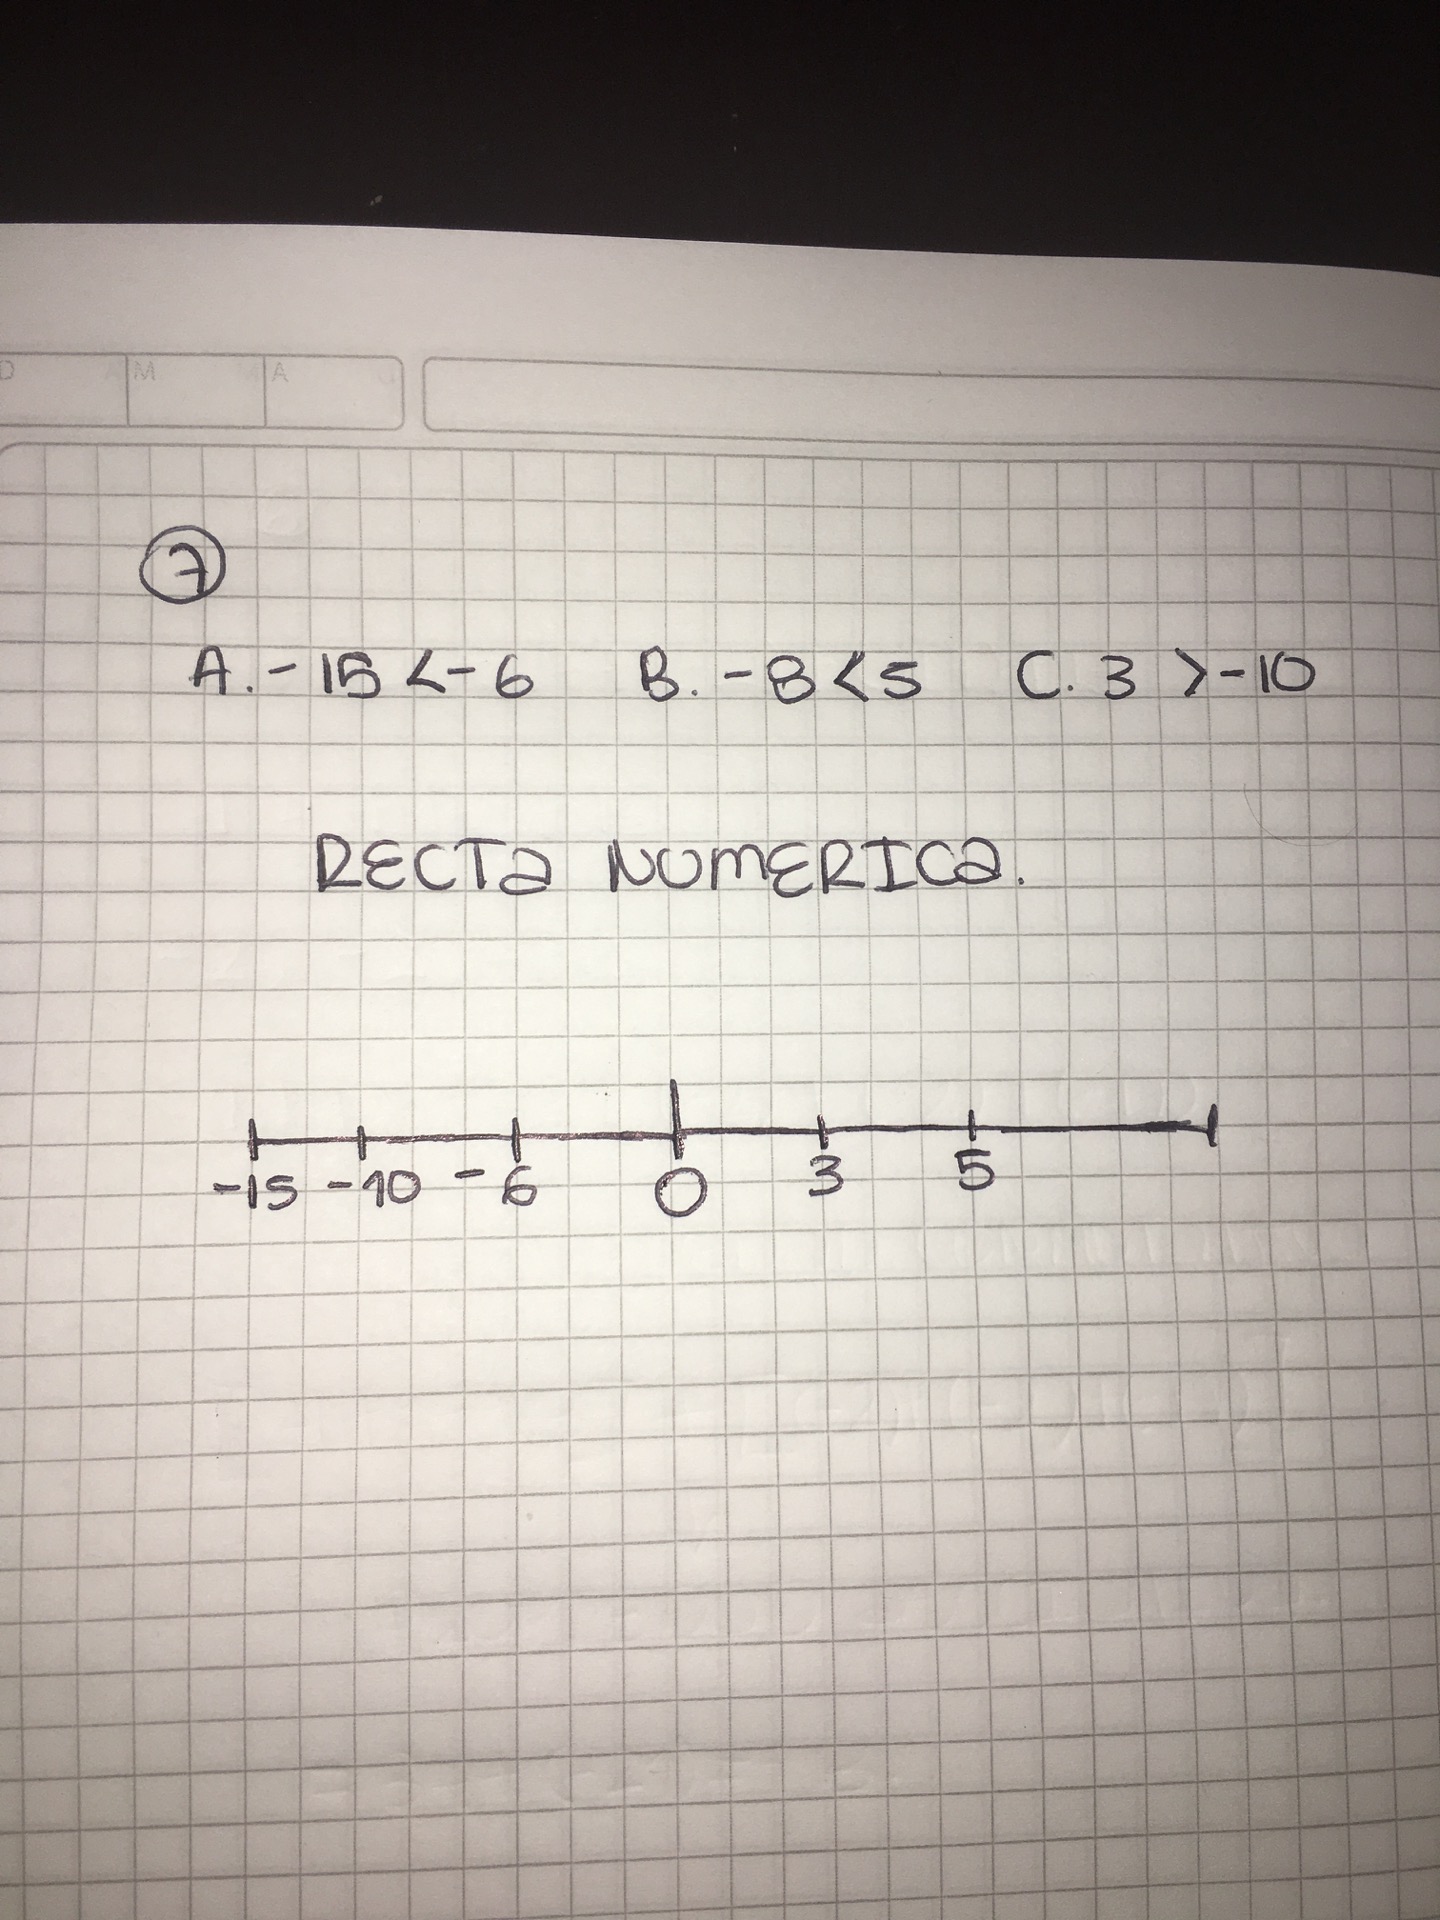 D M A
7
A. -15 < -6 B. -8 < 5 C. 3 > -10
RECTa NUmERICa.
-15 -10 -6 0 3 5